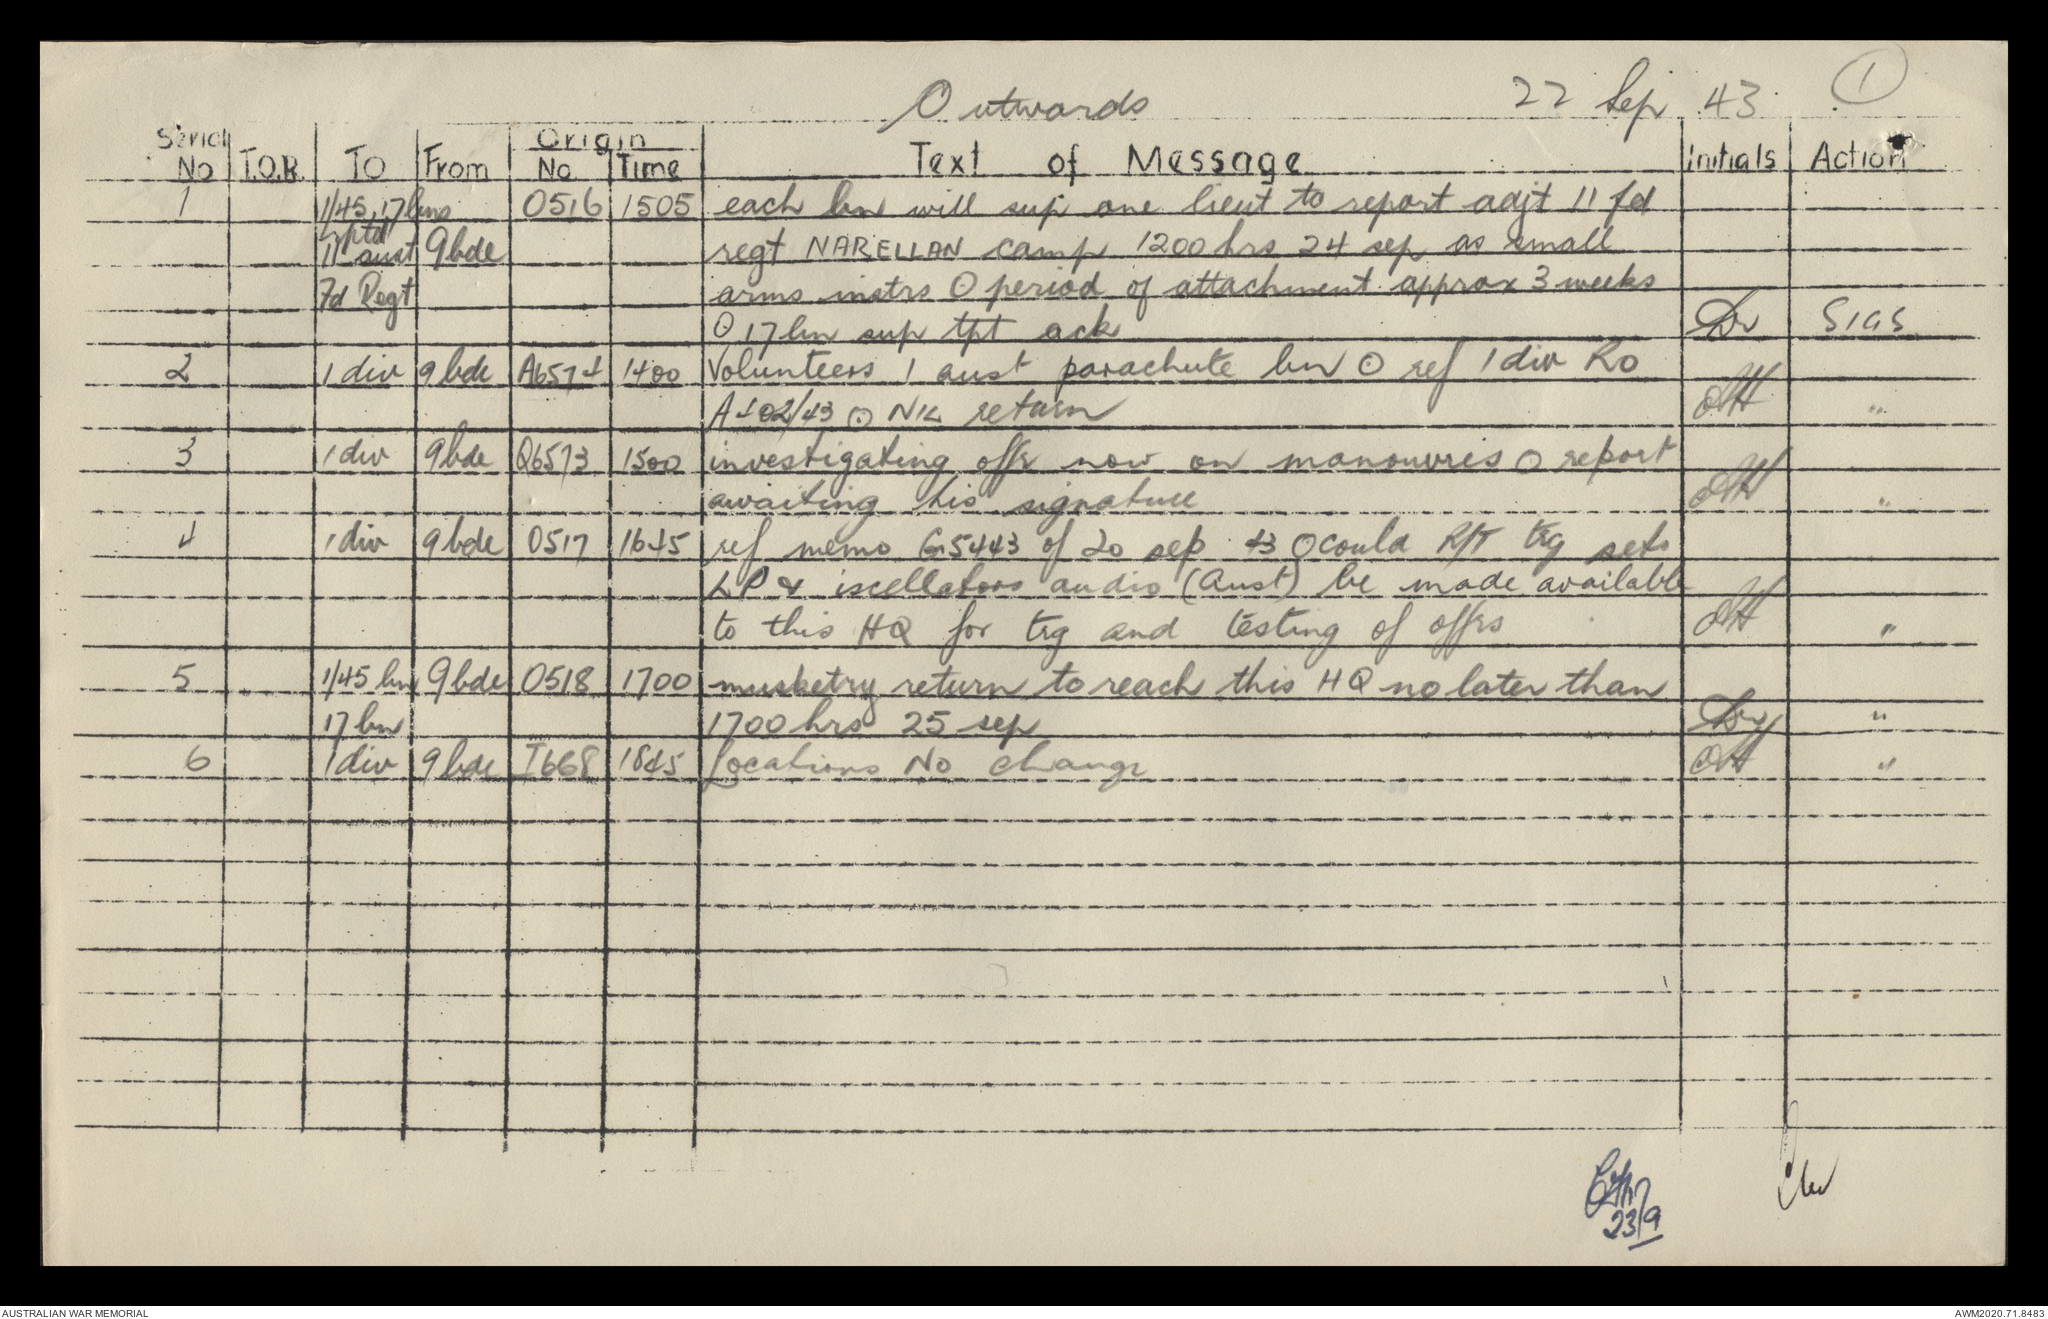 Outwards 22 Sep 43. 1
Serial Origin
No T.O.R. TO From No Time Text of Message Initials Action
1 1/45, 17 bns 0516 1505 each bn will sup one lieut to report adjt 11 fd
rptd
11 aust 9 bde regt NARELLAN camp 1200 hrs 24 sep as small
7d Regt arms instrs O period of attachment approx 3 weeks
O 17 bn sup tpt ack SIGS
2 1 div 9 bde A6574 1400 Volunteers 1 aust parachute bn O ref 1 div RO
A402/43 O NIL return "
3 1 div 9 bde Q6573 1500 investigating offr now on manouvres O report
awaiting his signature "
4 1 div 9 bde 0517 1645 ref memo G5443 of 20 sep 43 O could R/T trg sets
LP & iscellators audio (Aust) be made available
to this HQ for trg and testing of offrs "
5 1/45 bn 9 bde 0518 1700 musketry return to reach this HQ no later than
17 bn 1700 hrs 25 sep "
6 1 div 9 bde I668 1845 Locations No change "
23/9
AUSTRALIAN WAR MEMORIAL AWM2020.71.8483